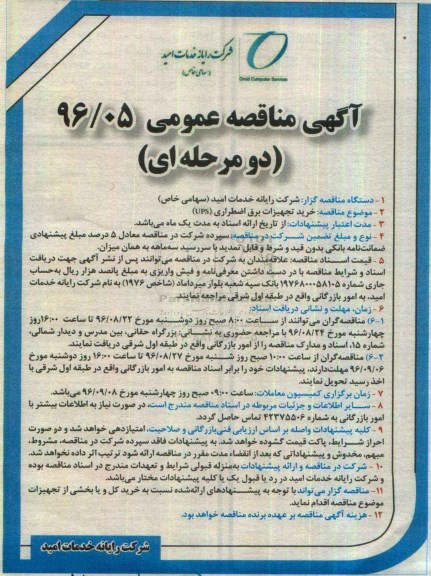 شرکت رایانه خدمات امید
(سهامی خاص)
Omid Computer Services
آگهی مناقصه عمومی ۹۶/۰۵
(دو مرحله ای)
۱- دستگاه مناقصه گزار: شرکت رایانه خدمات امید (سهامی خاص)
۲- موضوع مناقصه: خرید تجهیزات برق اضطراری (UPS)
۳- مدت اعتبار پیشنهادات: از تاریخ ارائه اسناد به مدت یک ماه می‌باشد.
۴- نوع و مبلغ تضمین شرکت در مناقصه: سپرده شرکت در مناقصه معادل ۵ درصد مبلغ پیشنهادی
ضمانت‌نامه بانکی بدون قید و شرط و قابل تمدید با سررسید سه‌ماهه به همان میزان.
۵- قیمت اسناد مناقصه: علاقه‌مندان به شرکت در مناقصه می‌توانند پس از نشر آگهی جهت دریافت
اسناد و شرایط مناقصه با در دست داشتن معرفی‌نامه و فیش واریزی به مبلغ پانصد هزار ریال به‌حساب
جاری شماره ۱۹۷۶۸۰۰۰۵۸۱۰۵ بانک سپه شعبه بلوار میرداماد (شاخص ۱۹۷۶) به نام شرکت رایانه خدمات
امید، به امور بازرگانی واقع در طبقه اول شرقی مراجعه نمایند.
۶- زمان، مهلت و نشانی دریافت اسناد:
۶-۱) مناقصه‌گران می‌توانند از ساعت ۸:۰۰ صبح روز دوشنبه مورخ ۹۶/۰۸/۲۲ تا ساعت ۱۶:۰۰ روز
چهارشنبه مورخ ۹۶/۰۸/۲۴ با مراجعه حضوری به نشانی: بزرگراه حقانی، بین مدرس و دیدار شمالی،
شماره ۱۵، اسناد و مدارک مناقصه را از امور بازرگانی واقع در طبقه اول شرقی دریافت نمایند.
۶-۲) مناقصه‌گران از ساعت ۱۰:۰۰ صبح روز شنبه مورخ ۹۶/۰۸/۲۷ تا ساعت ۱۶:۰۰ روز دوشنبه مورخ
۹۶/۰۹/۰۶ مهلت‌دارند، پیشنهادات خود را برابر اسناد مناقصه به امور بازرگانی واقع در طبقه اول شرقی با
اخذ رسید تحویل نمایند.
۷- زمان برگزاری کمیسیون معاملات: ساعت ۰۹:۰۰ صبح روز چهارشنبه مورخ ۹۶/۰۹/۰۸ می‌باشد.
۸- سایر اطلاعات و جزئیات مربوطه در اسناد مناقصه مندرج است، در صورت نیاز به اطلاعات بیشتر با
امور بازرگانی به شماره ۴۲۳۷۵۵۰۶ تماس حاصل گردد.
۹- کلیه پیشنهادات واصله بر اساس ارزیابی فنی‌بازرگانی و صلاحیت، امتیازدهی خواهد شد و در صورت
احراز شرایط، پاکت قیمت گشوده خواهد شد. به پیشنهادات فاقد سپرده شرکت در مناقصه، مشروط،
مبهم، مخدوش و پیشنهاداتی که بعد از انقضاء مدت مقرر در مناقصه ارائه شود ترتیب اثر داده نخواهد شد.
۱۰- شرکت در مناقصه و ارائه پیشنهادات به‌منزله قبولی شرایط و تعهدات مندرج در اسناد مناقصه بوده
و شرکت رایانه خدمات امید در رد یا قبول یک یا کلیه پیشنهادات مختار می‌باشد.
۱۱- مناقصه گزار می‌تواند با توجه به پیشنهادهای ارائه‌شده نسبت به خرید کل و یا بخشی از تجهیزات
موضوع مناقصه اقدام نماید.
۱۲- هزینه آگهی مناقصه بر عهده برنده مناقصه خواهد بود.
شرکت رایانه خدمات امید